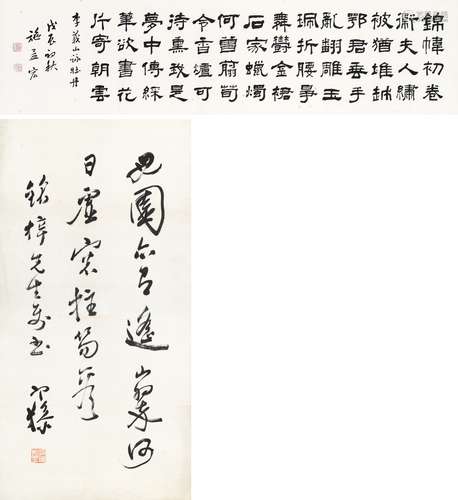 錦幃初卷
衞夫人繡
被猶堆越
鄂君垂手
亂翻雕玉
珮折腰爭
舞鬱金裙
石家蠟燭
何曾翦荀
令香爐可
待熏我是
夢中傳綵
筆欲書花
片寄朝雲
李義山詠牡丹
戊辰初秋
孟宏
園亦有遙山翠何
日虛窓拄笏看
先生